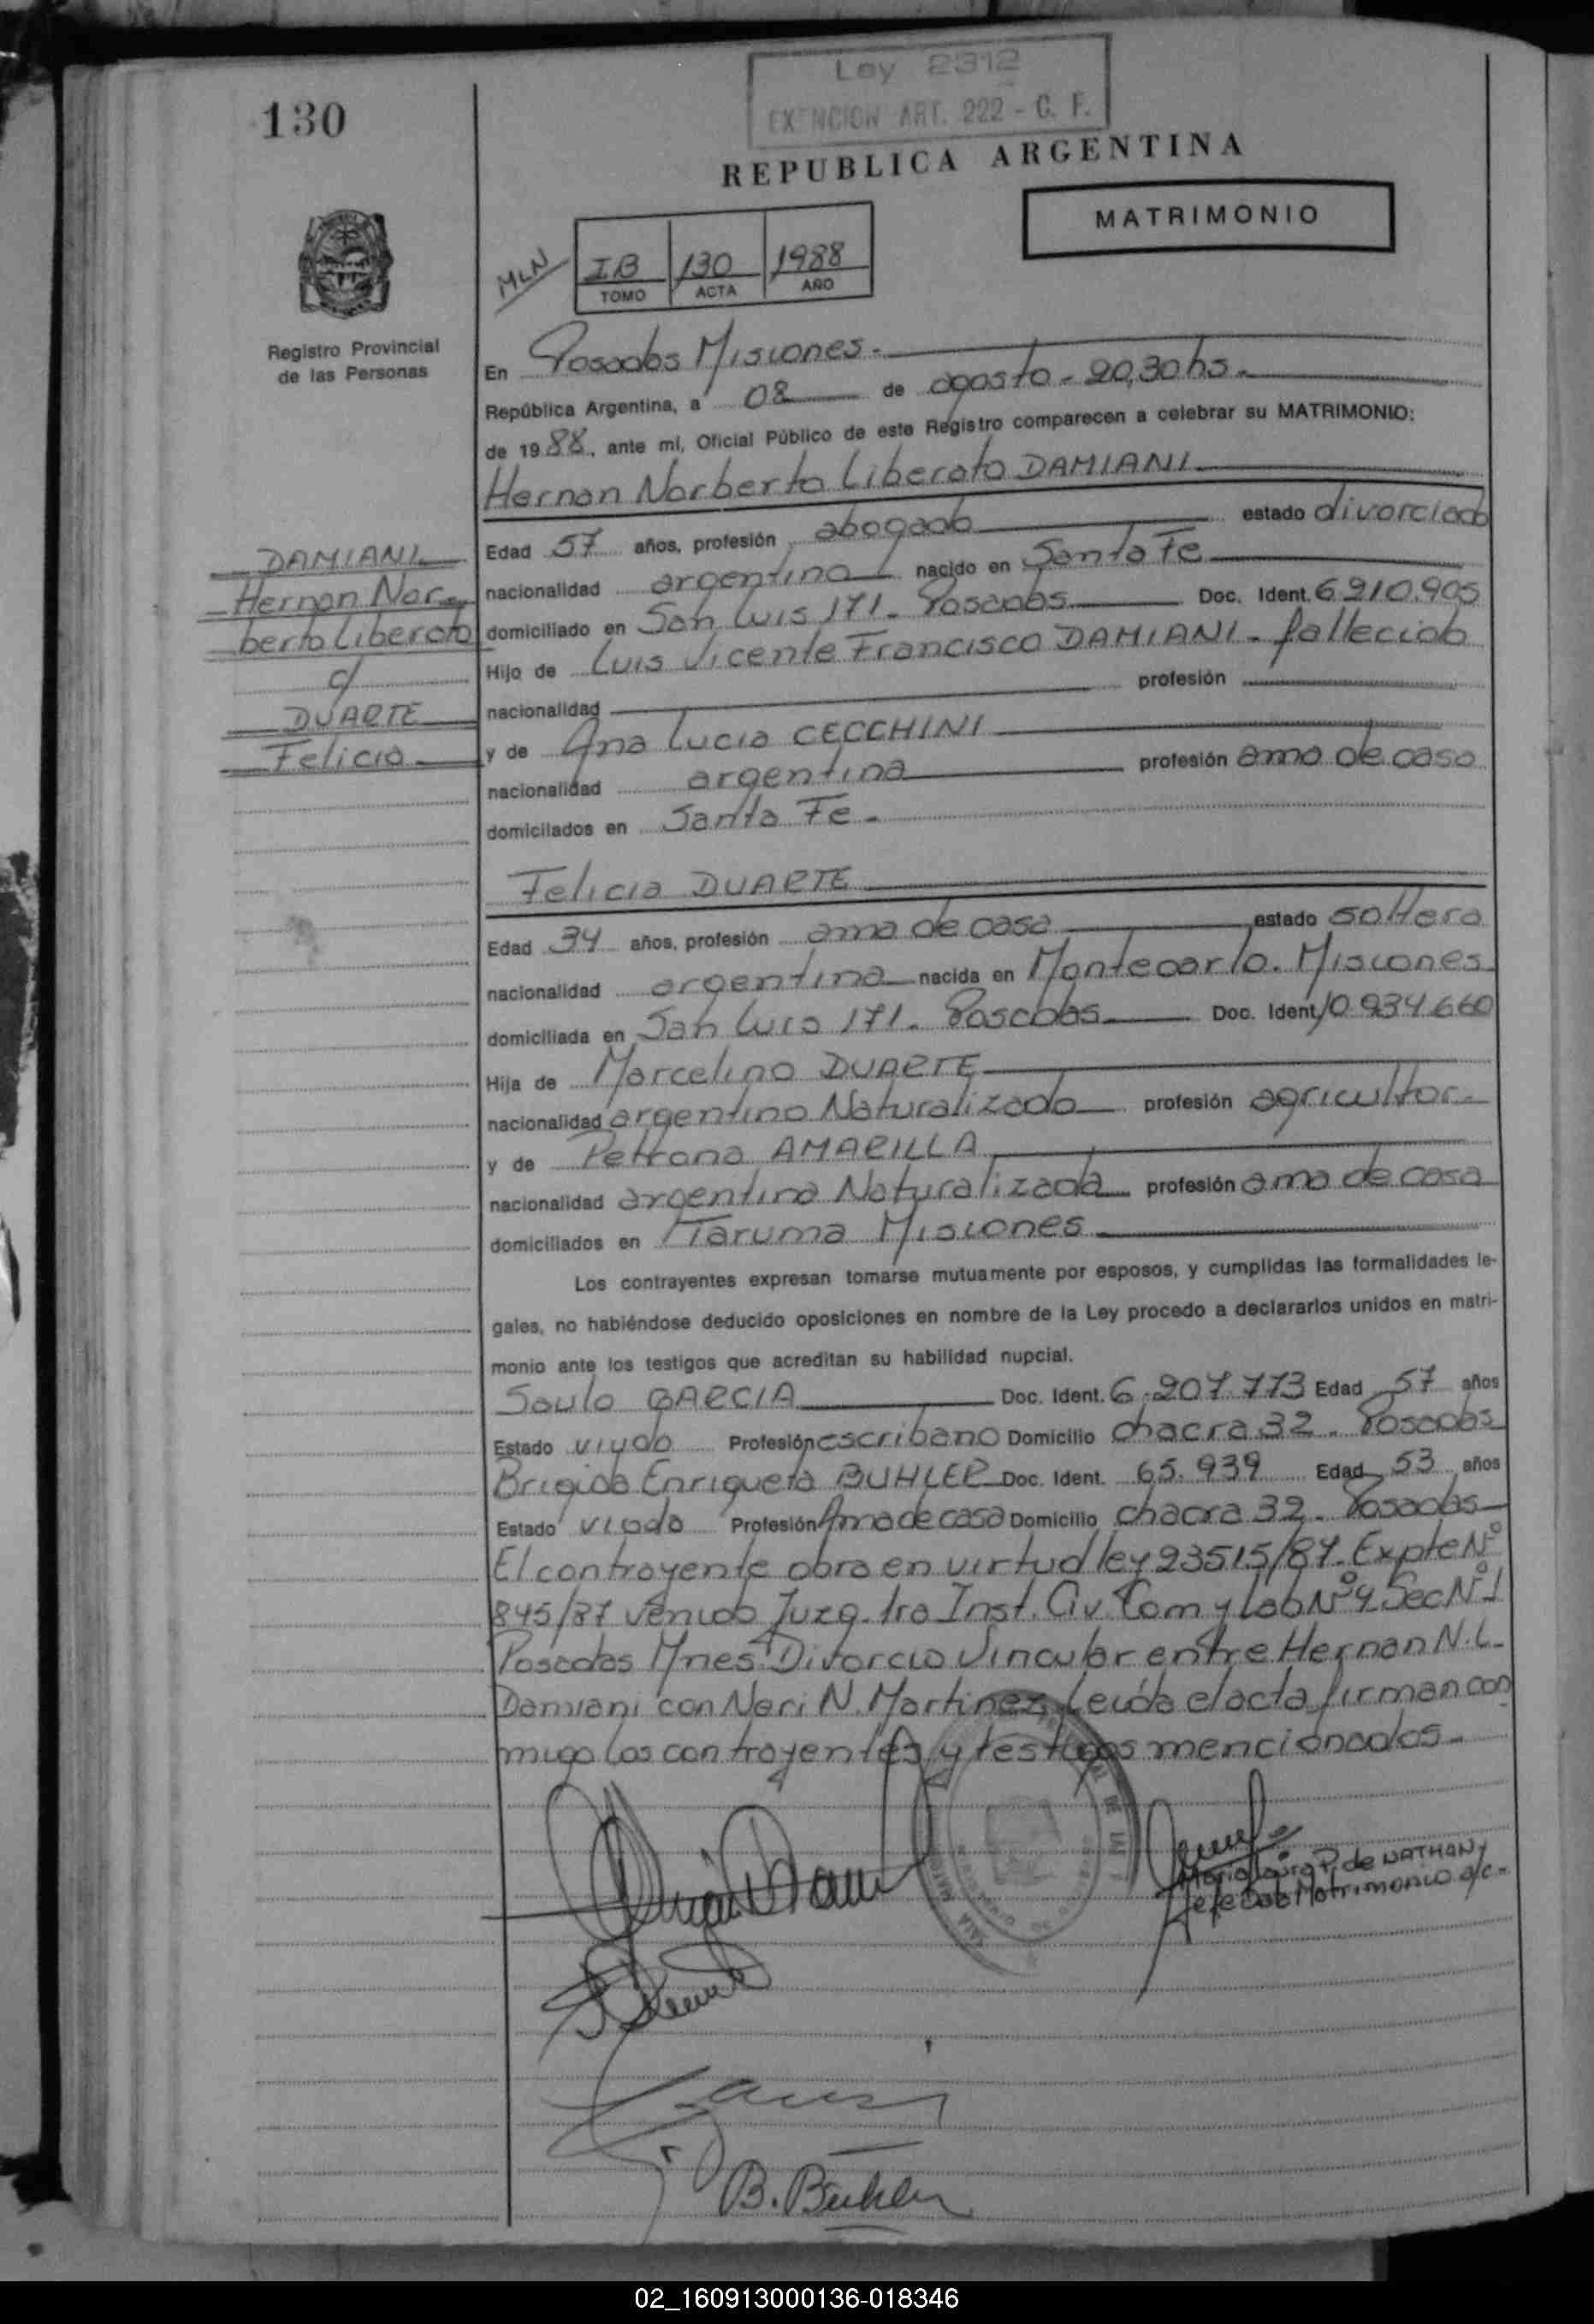 Ley 2312
EXENCION ART. 222 - C. F.
130
REPUBLICA ARGENTINA
MATRIMONIO
MLN
IB 130 1988
TOMO ACTA AÑO
Registro Provincial
de las Personas
En Posadas Misiones.
República Argentina, a 08 de agosto - 20,30 hs.
de 1988, ante mi, Oficial Público de este Registro comparecen a celebrar su MATRIMONIO:
Hernan Norberto Liberato DAMIANI
DAMIANI
Hernan Nor-
berto Liberato
c/
DUARTE
Felicia
Edad 57 años, profesión abogado estado divorciado
nacionalidad argentino nacido en Santa Fe
domiciliado en San Luis 171. Posadas Doc. Ident. 6210.905
Hijo de Luis Vicente Francisco DAMIANI - fallecido
nacionalidad profesión
y de Ana Lucia CECCHINI
nacionalidad argentina profesión ama de casa
domicilados en Santa Fe.
Felicia DUARTE
Edad 34 años, profesión ama de casa estado soltera
nacionalidad argentina nacida en Montecarlo. Misiones
domiciliada en San Luis 171. Posadas Doc. Ident. 10.934.660
Hija de Marcelino DUARTE
nacionalidad argentino Naturalizado profesión agricultor.
y de Petrona AMARILLA
nacionalidad argentina Naturalizada profesión ama de casa
domiciliados en Taruma Misiones
Los contrayentes expresan tomarse mutuamente por esposos, y cumplidas las formalidades le-
gales, no habiéndose deducido oposiciones en nombre de la Ley procedo a declararlos unidos en matri-
monio ante los testigos que acreditan su habilidad nupcial.
Saulo GARCIA Doc. Ident. 6.207.773 Edad 57 años
Estado viudo Profesión escribano Domicilio chacra 32. Posadas
Brigida Enriqueta BUHLER Doc. Ident. 65.939 Edad 53 años
Estado viuda Profesión Ama de casa Domicilio chacra 32. Posadas
El contrayente obra en virtud ley 23515/87. Expte Nº
845/87 venido Juzg. 1ra Inst. Civ. Com y Lab Nº 4 Sec Nº 1
Posadas Mnes. Divorcio Vincular entre Hernan N. L.
Damiani con Neri N. Martinez. Leída el acta firman con
migo los contrayentes y testigos mencionados.
Maria Laura P. de NATHAN
Jefe Dpto Matrimonio a/c.
B. Buhler
02_160913000136-018346